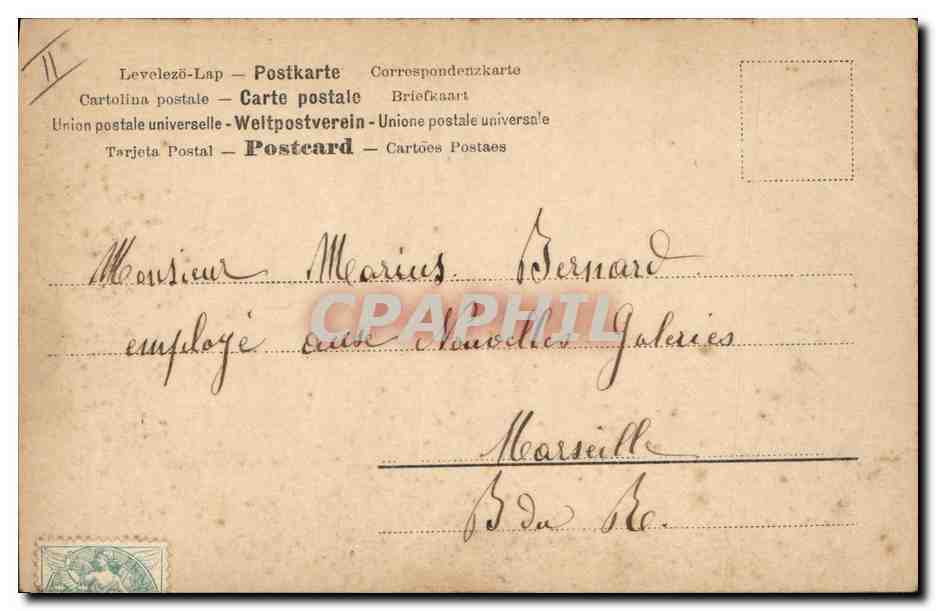 11
Levelezö-Lap — Postkarte Correspondenzkarte
Cartolina postale — Carte postale Briefkaart
Union postale universelle - Weltpostverein - Unione postale universale
Tarjeta Postal — Postcard — Cartões Postaes
Monsieur Marius Bernard
CPAPHIL
employé aux Nouvelles Galeries
Marseille
B du R.